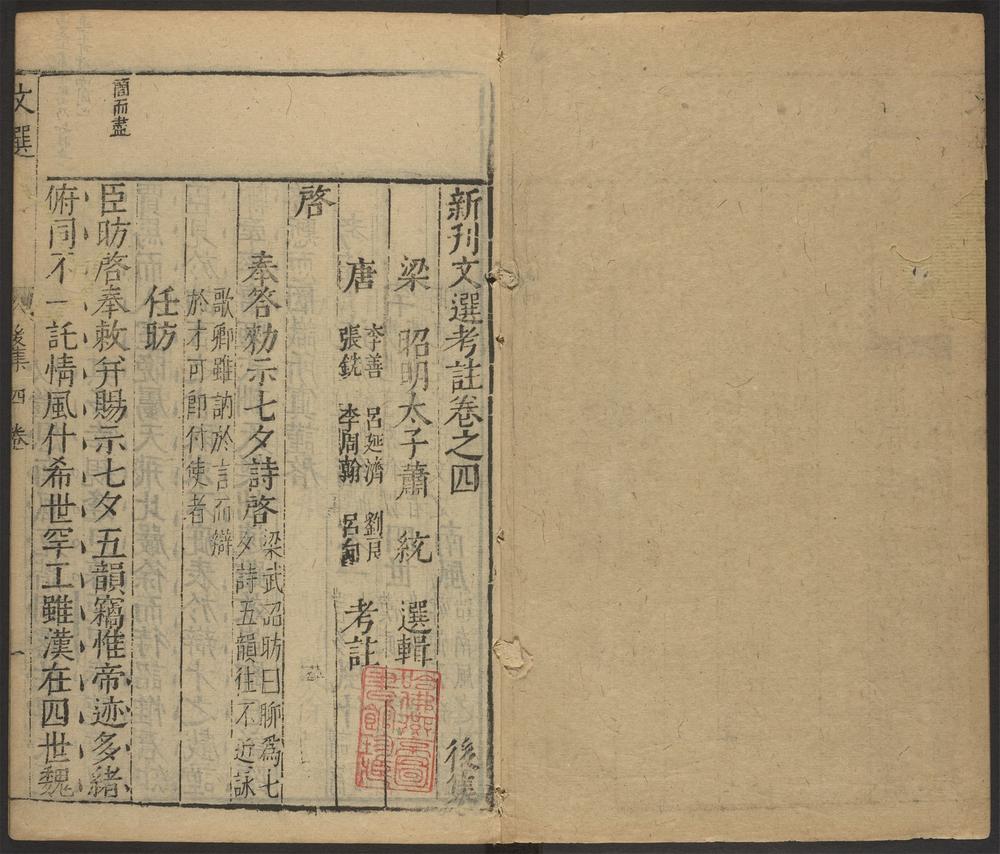 新刊文選考註卷之四 後集
梁 昭明太子蕭 統 選輯
唐 李善 呂延濟 劉良
張銑 李周翰 呂向 考註
啓
奉答勑示七夕詩啓 梁武詔昉曰聊爲七
夕詩五韻徃不近詠
歌卿雖訥於言而辯
於才可即付使者
任昉
臣昉啓奉敕幷賜示七夕五韻竊惟帝迹多緒
俯同不一託情風什希世罕工雖漢在四世魏
簡而盡
文選
後集 四卷
一